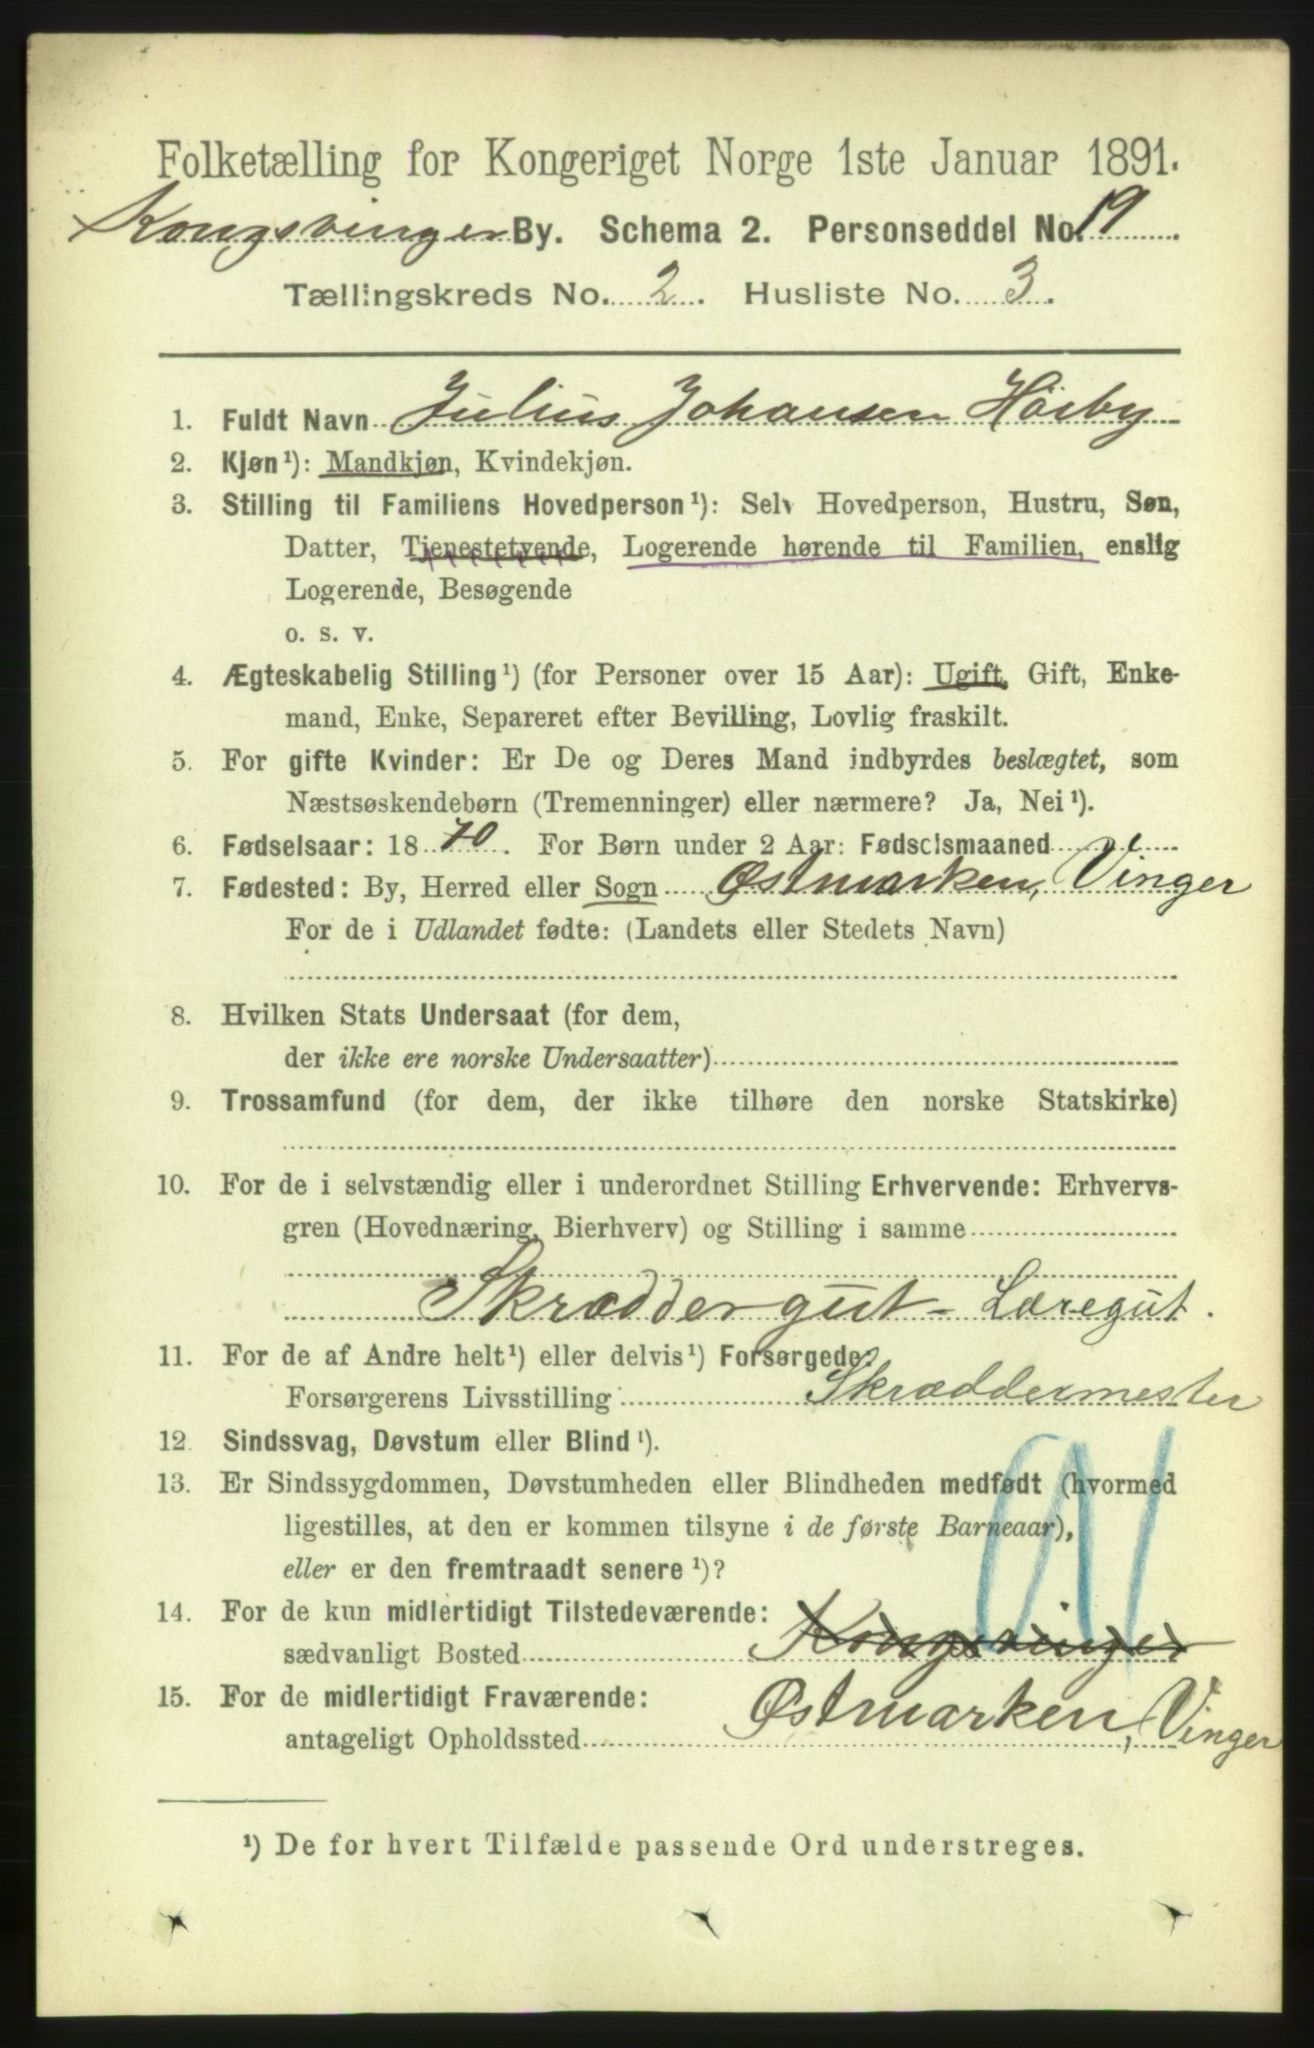 Folketælling for Kongeriget Norge 1ste Januar 1891.
Kongsvinger By. Schema 2. Personseddel No. 19
Tællingskreds No. 2. Husliste No. 3.
1. Fuldt Navn Julius Johansen Höiby
2. Kjøn¹): Mandkjøn, Kvindekjøn.
3. Stilling til Familiens Hovedperson¹): Selv Hovedperson, Hustru, Søn,
Datter, Tjenestetyende, Logerende hørende til Familien, enslig
Logerende, Besøgende
o. s. v.
4. Ægteskabelig Stilling¹) (for Personer over 15 Aar): Ugift, Gift, Enke-
mand, Enke, Separeret efter Bevilling, Lovlig fraskilt.
5. For gifte Kvinder: Er De og Deres Mand indbyrdes beslægtet, som
Næstsøskendebørn (Tremenninger) eller nærmere? Ja, Nei¹).
6. Fødselsaar: 1870. For Børn under 2 Aar: Fødselsmaaned
7. Fødested: By, Herred eller Sogn Østmarken, Vinger
For de i Udlandet fødte: (Landets eller Stedets Navn)
8. Hvilken Stats Undersaat (for dem,
der ikke ere norske Undersaatter)
9. Trossamfund (for dem, der ikke tilhøre den norske Statskirke)
10. For de i selvstændig eller i underordnet Stilling Erhvervende: Erhvervs-
gren (Hovednæring, Bierhverv) og Stilling i samme
Skræddergut - Læregut.
11. For de af Andre helt¹) eller delvis¹) Forsørgede:
Forsørgerens Livsstilling Skræddermester
12. Sindssvag, Døvstum eller Blind¹).
13. Er Sindssygdommen, Døvstumheden eller Blindheden medfødt (hvormed
ligestilles, at den er kommen tilsyne i de første Barneaar),
eller er den fremtraadt senere¹)?
14. For de kun midlertidigt Tilstedeværende:
sædvanligt Bosted Kongsvinger
15. For de midlertidigt Fraværende:
antageligt Opholdssted Østmarken, Vinger
¹) De for hvert Tilfælde passende Ord understreges.